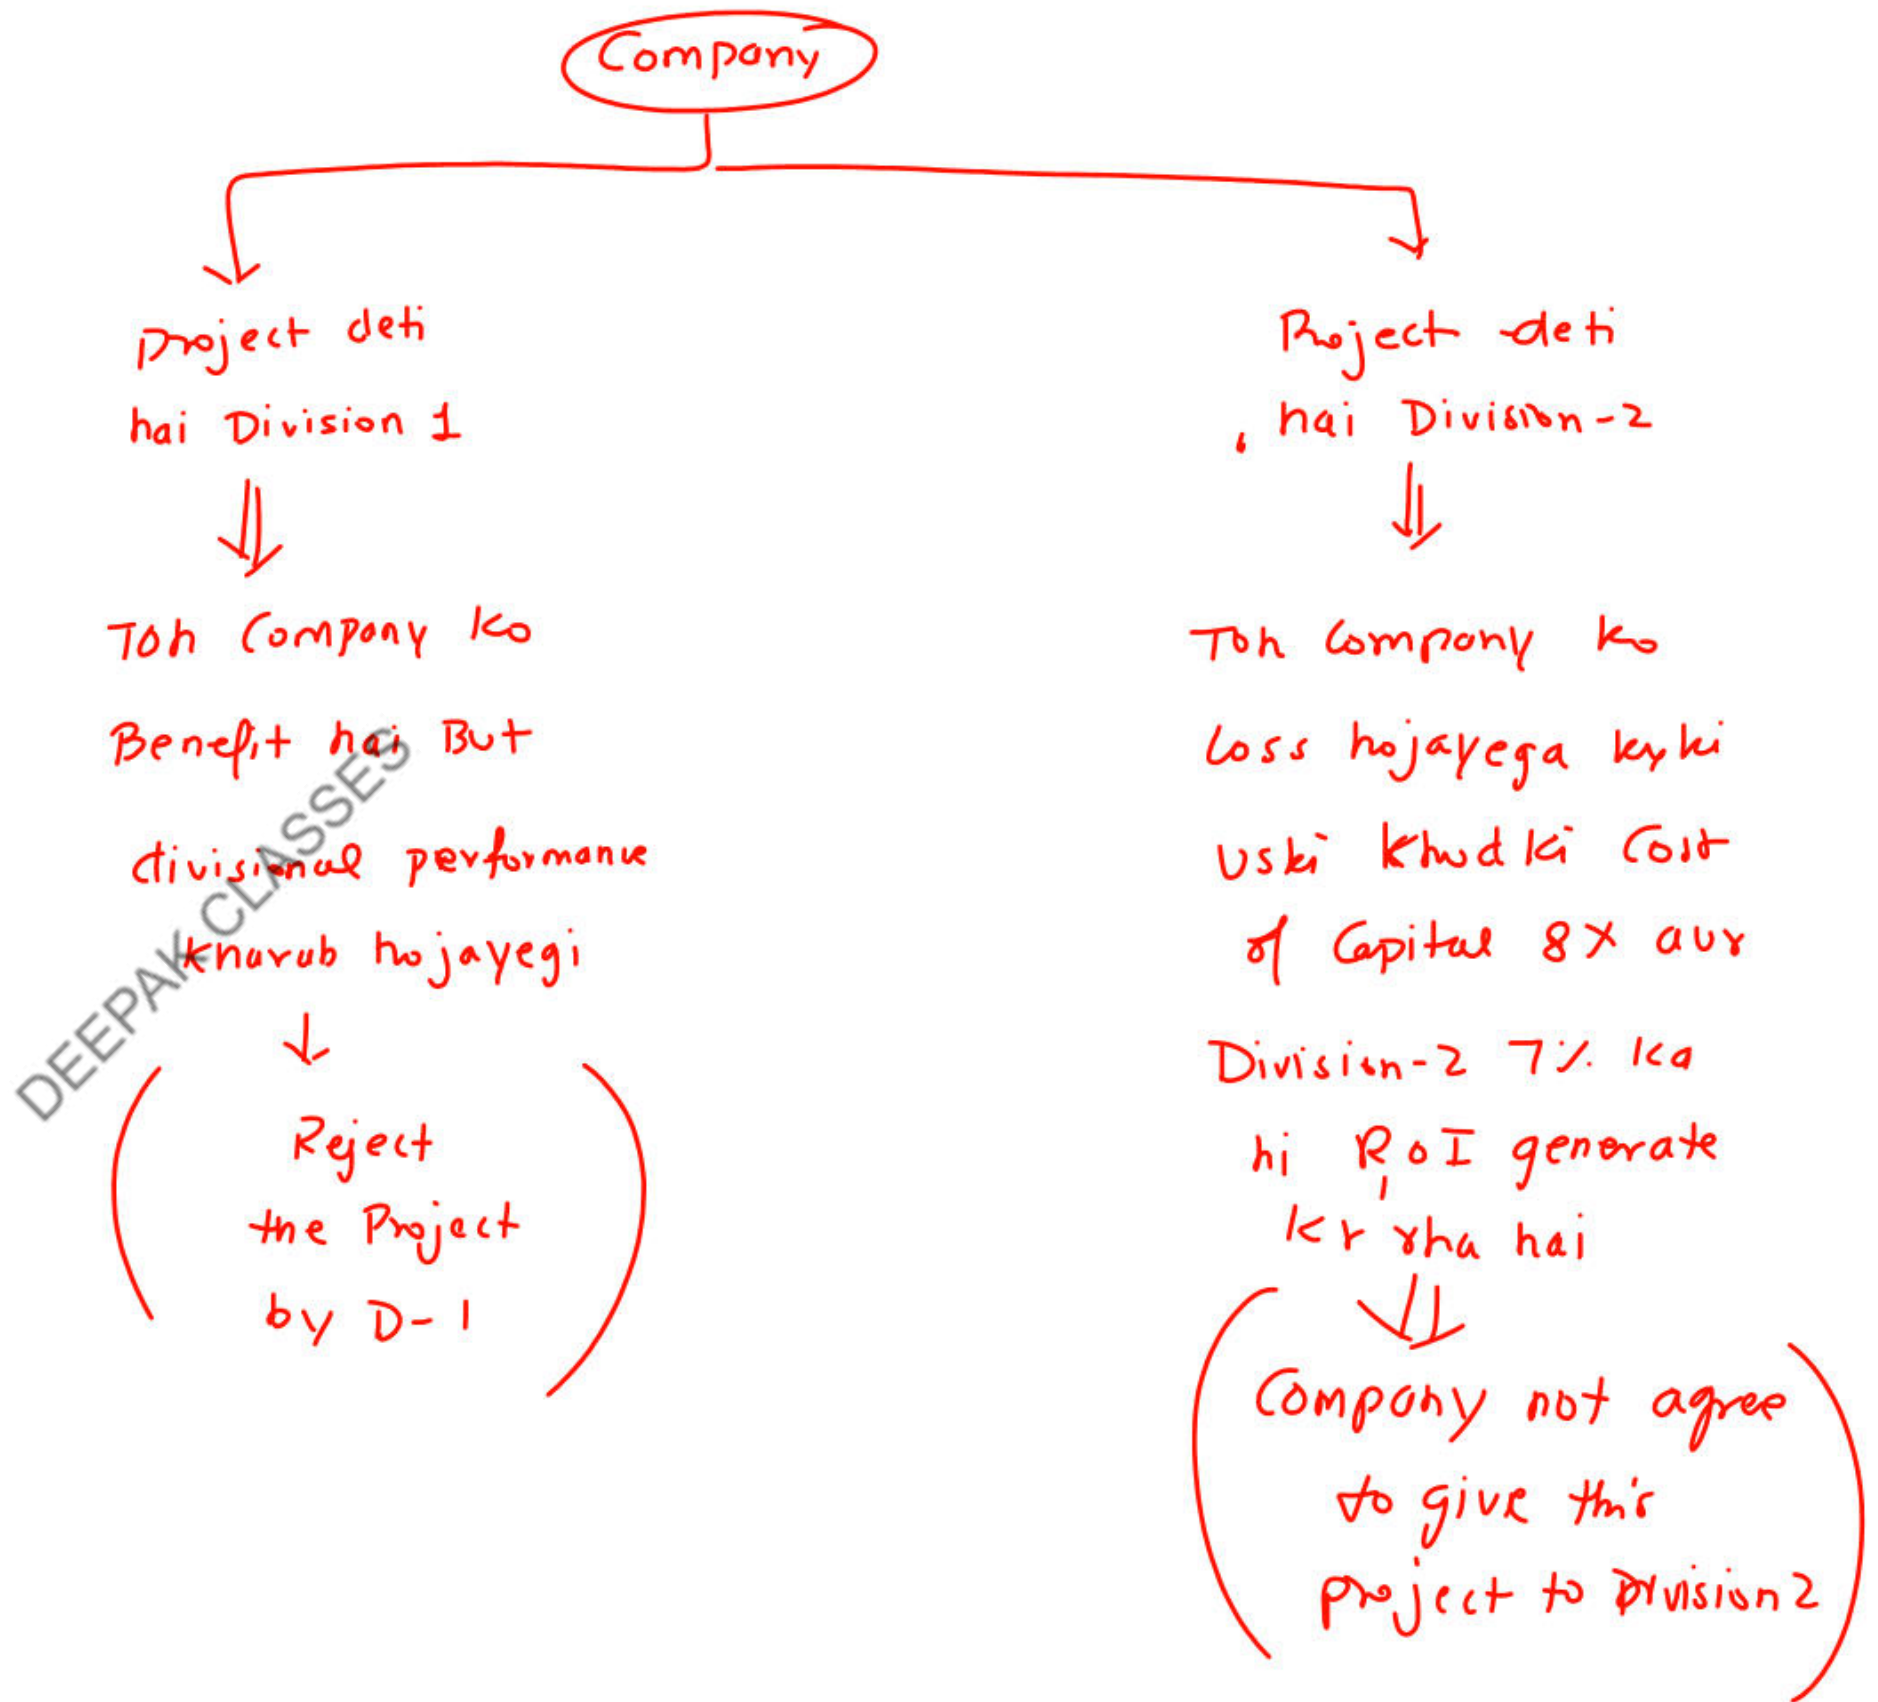 Company
Project deti
hai Division 1
Toh Company ko
Benefit hai But
divisional performance
kharab hojayegi
Reject
the Project
by D-1
Project deti
hai Division-2
Toh Company ko
loss hojayega kyki
uski khud ki Cost
of Capital 8% aur
Division-2 7% ka
hi ROI generate
kr rha hai
Company not agree
to give this
project to Division 2
DEEPAK CLASSES